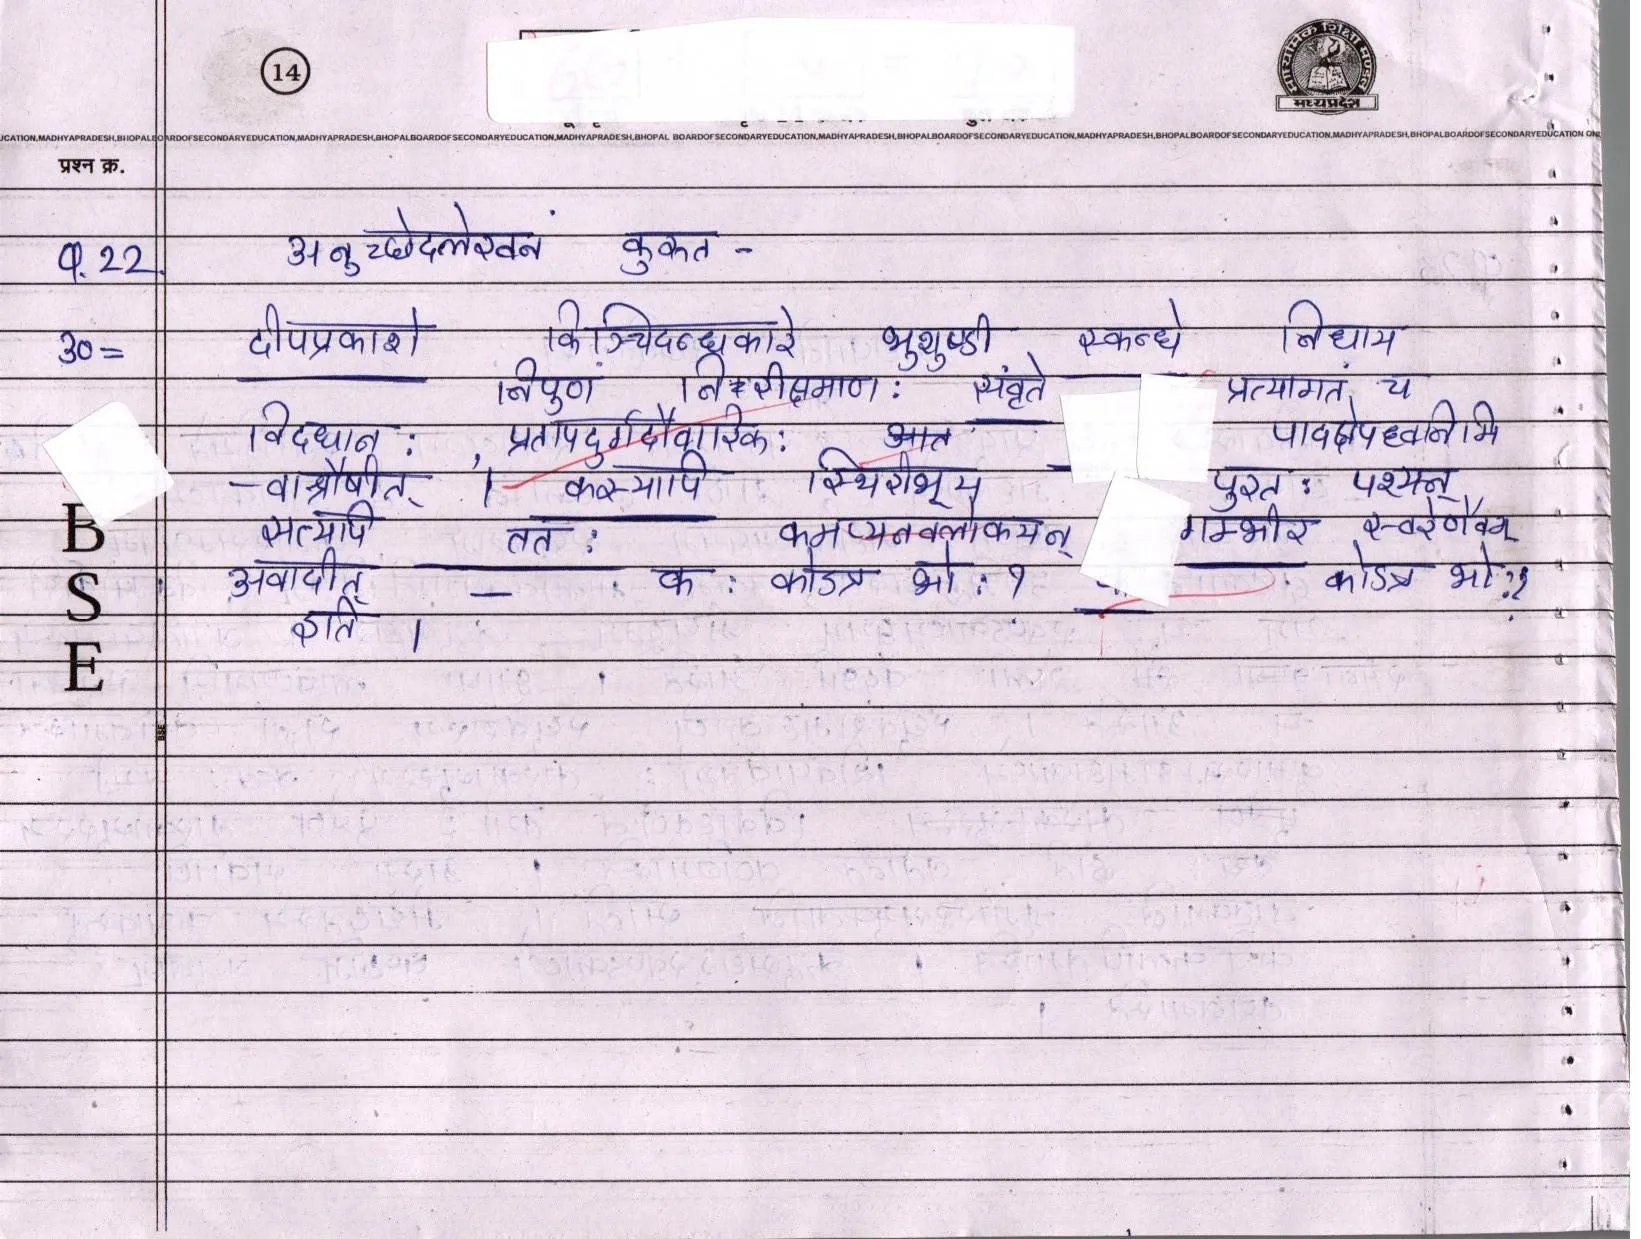 14
मध्यप्रदेश
UCATION,MADHYAPRADESH,BHOPALBOARDOFSECONDARYEDUCATION,MADHYAPRADESH,BHOPALBOARDOFSECONDARYEDUCATION,MADHYAPRADESH,BHOPAL BOARDOFSECONDARYEDUCATION,MADHYAPRADESH,BHOPALBOARDOFSECONDARYEDUCATION,MADHYAPRADESH,BHOPALBOARDOFSECONDARYEDUCATION
प्रश्न क्र.
Q.22. अनुच्छेदलेखनं कुरुत -
उ०= दीपप्रकाशे किञ्चिदन्धकारे भुशुण्डी स्कन्धे निधाय
निपुणं निरीक्षमाण: संवृते प्रत्यागतं च
विदधान: , प्रतापदुर्गदौवारिक: आत पादक्षेपध्वनिमि
-वाश्रौषीत् । कस्यापि स्थिरीभूय पुरत: पश्यन्
सत्यापि तत: कमप्यनवलोकयन् गम्भीर स्वरेणैवम्
अवादीत् — क: कोऽत्र भो: ? कोऽत्र भो: ?
इति ।
B
S
E